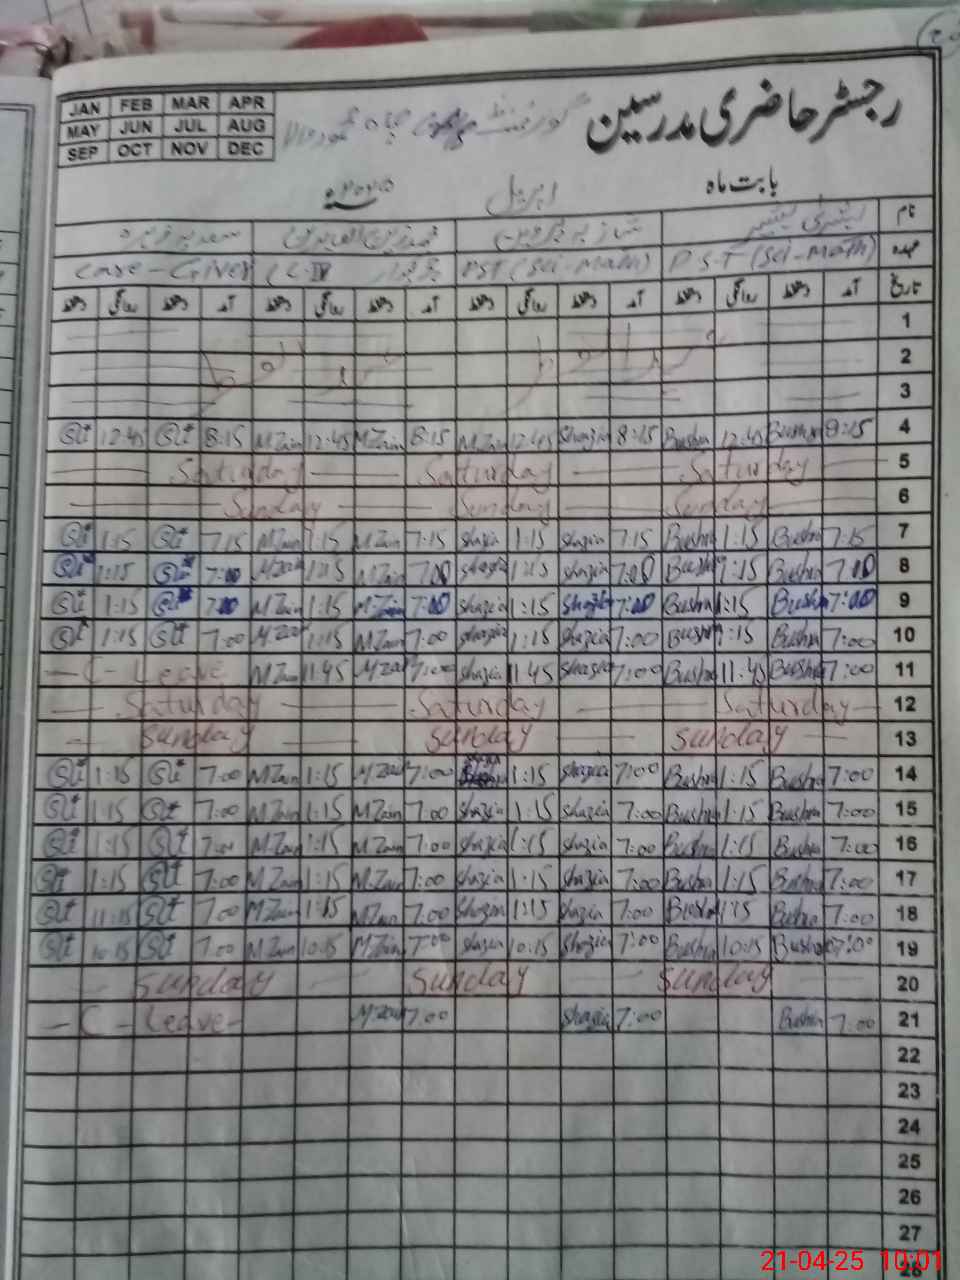 JAN FEB MAR APR
MAY JUN JUL AUG
SEP OCT NOV DEC
رجسٹر حاضری مدرسین
گورنمنٹ
بابت ماہ اپریل ۲۰۲۵
نام
عہدہ P.S.T (Sci-Math) PST (Sci-Math) C-IV Care-Giver
تاریخ آمد دستخط روانگی دستخط آمد دستخط روانگی دستخط آمد دستخط روانگی دستخط آمد دستخط روانگی دستخط
1
2
3
12:45 8:15 M Zain 12:45 M Zain 8:15 M Zain 12:45 Shazia 8:15 Bushra 12:45 Bushra 8:15 4
Saturday Saturday Saturday 5
Sunday Sunday Sunday 6
1:15 7:15 M Zain 1:15 M Zain 7:15 Shazia 1:15 Shazia 7:15 Bushra 1:15 Bushra 7:15 7
1:15 7:00 M Zain 1:15 M Zain 7:00 Shazia 1:15 Shazia 7:00 Bushra 1:15 Bushra 7:00 8
1:15 7:00 M Zain 1:15 M Zain 7:00 Shazia 1:15 Shazia 7:00 Bushra 1:15 Bushra 7:00 9
1:15 7:00 M Zain 1:15 M Zain 7:00 Shazia 1:15 Shazia 7:00 Bushra 1:15 Bushra 7:00 10
C - Leave M Zain 11:45 M Zain 7:00 Shazia 11:45 Shazia 7:00 Bushra 11:45 Bushra 7:00 11
Saturday Saturday Saturday 12
Sunday Sunday Sunday 13
1:15 7:00 M Zain 1:15 M Zain 7:00 1:15 Shazia 7:00 Bushra 1:15 Bushra 7:00 14
1:15 7:00 M Zain 1:15 M Zain 7:00 Shazia 1:15 Shazia 7:00 Bushra 1:15 Bushra 7:00 15
1:15 7:00 M Zain 1:15 M Zain 7:00 Shazia 1:15 Shazia 7:00 Bushra 1:15 Bushra 7:00 16
1:15 7:00 M Zain 1:15 M Zain 7:00 Shazia 1:15 Shazia 7:00 Bushra 1:15 Bushra 7:00 17
11:15 7:00 M Zain 1:15 M Zain 7:00 Shazia 1:15 Shazia 7:00 Bushra 1:15 Bushra 7:00 18
10:15 7:00 M Zain 10:15 M Zain 7:00 Shazia 10:15 Shazia 7:00 Bushra 10:15 Bushra 7:00 19
Sunday Sunday Sunday 20
C - Leave M Zain 7:00 Shazia 7:00 Bushra 7:00 21
22
23
24
25
26
27
28
21-04-25 10:01